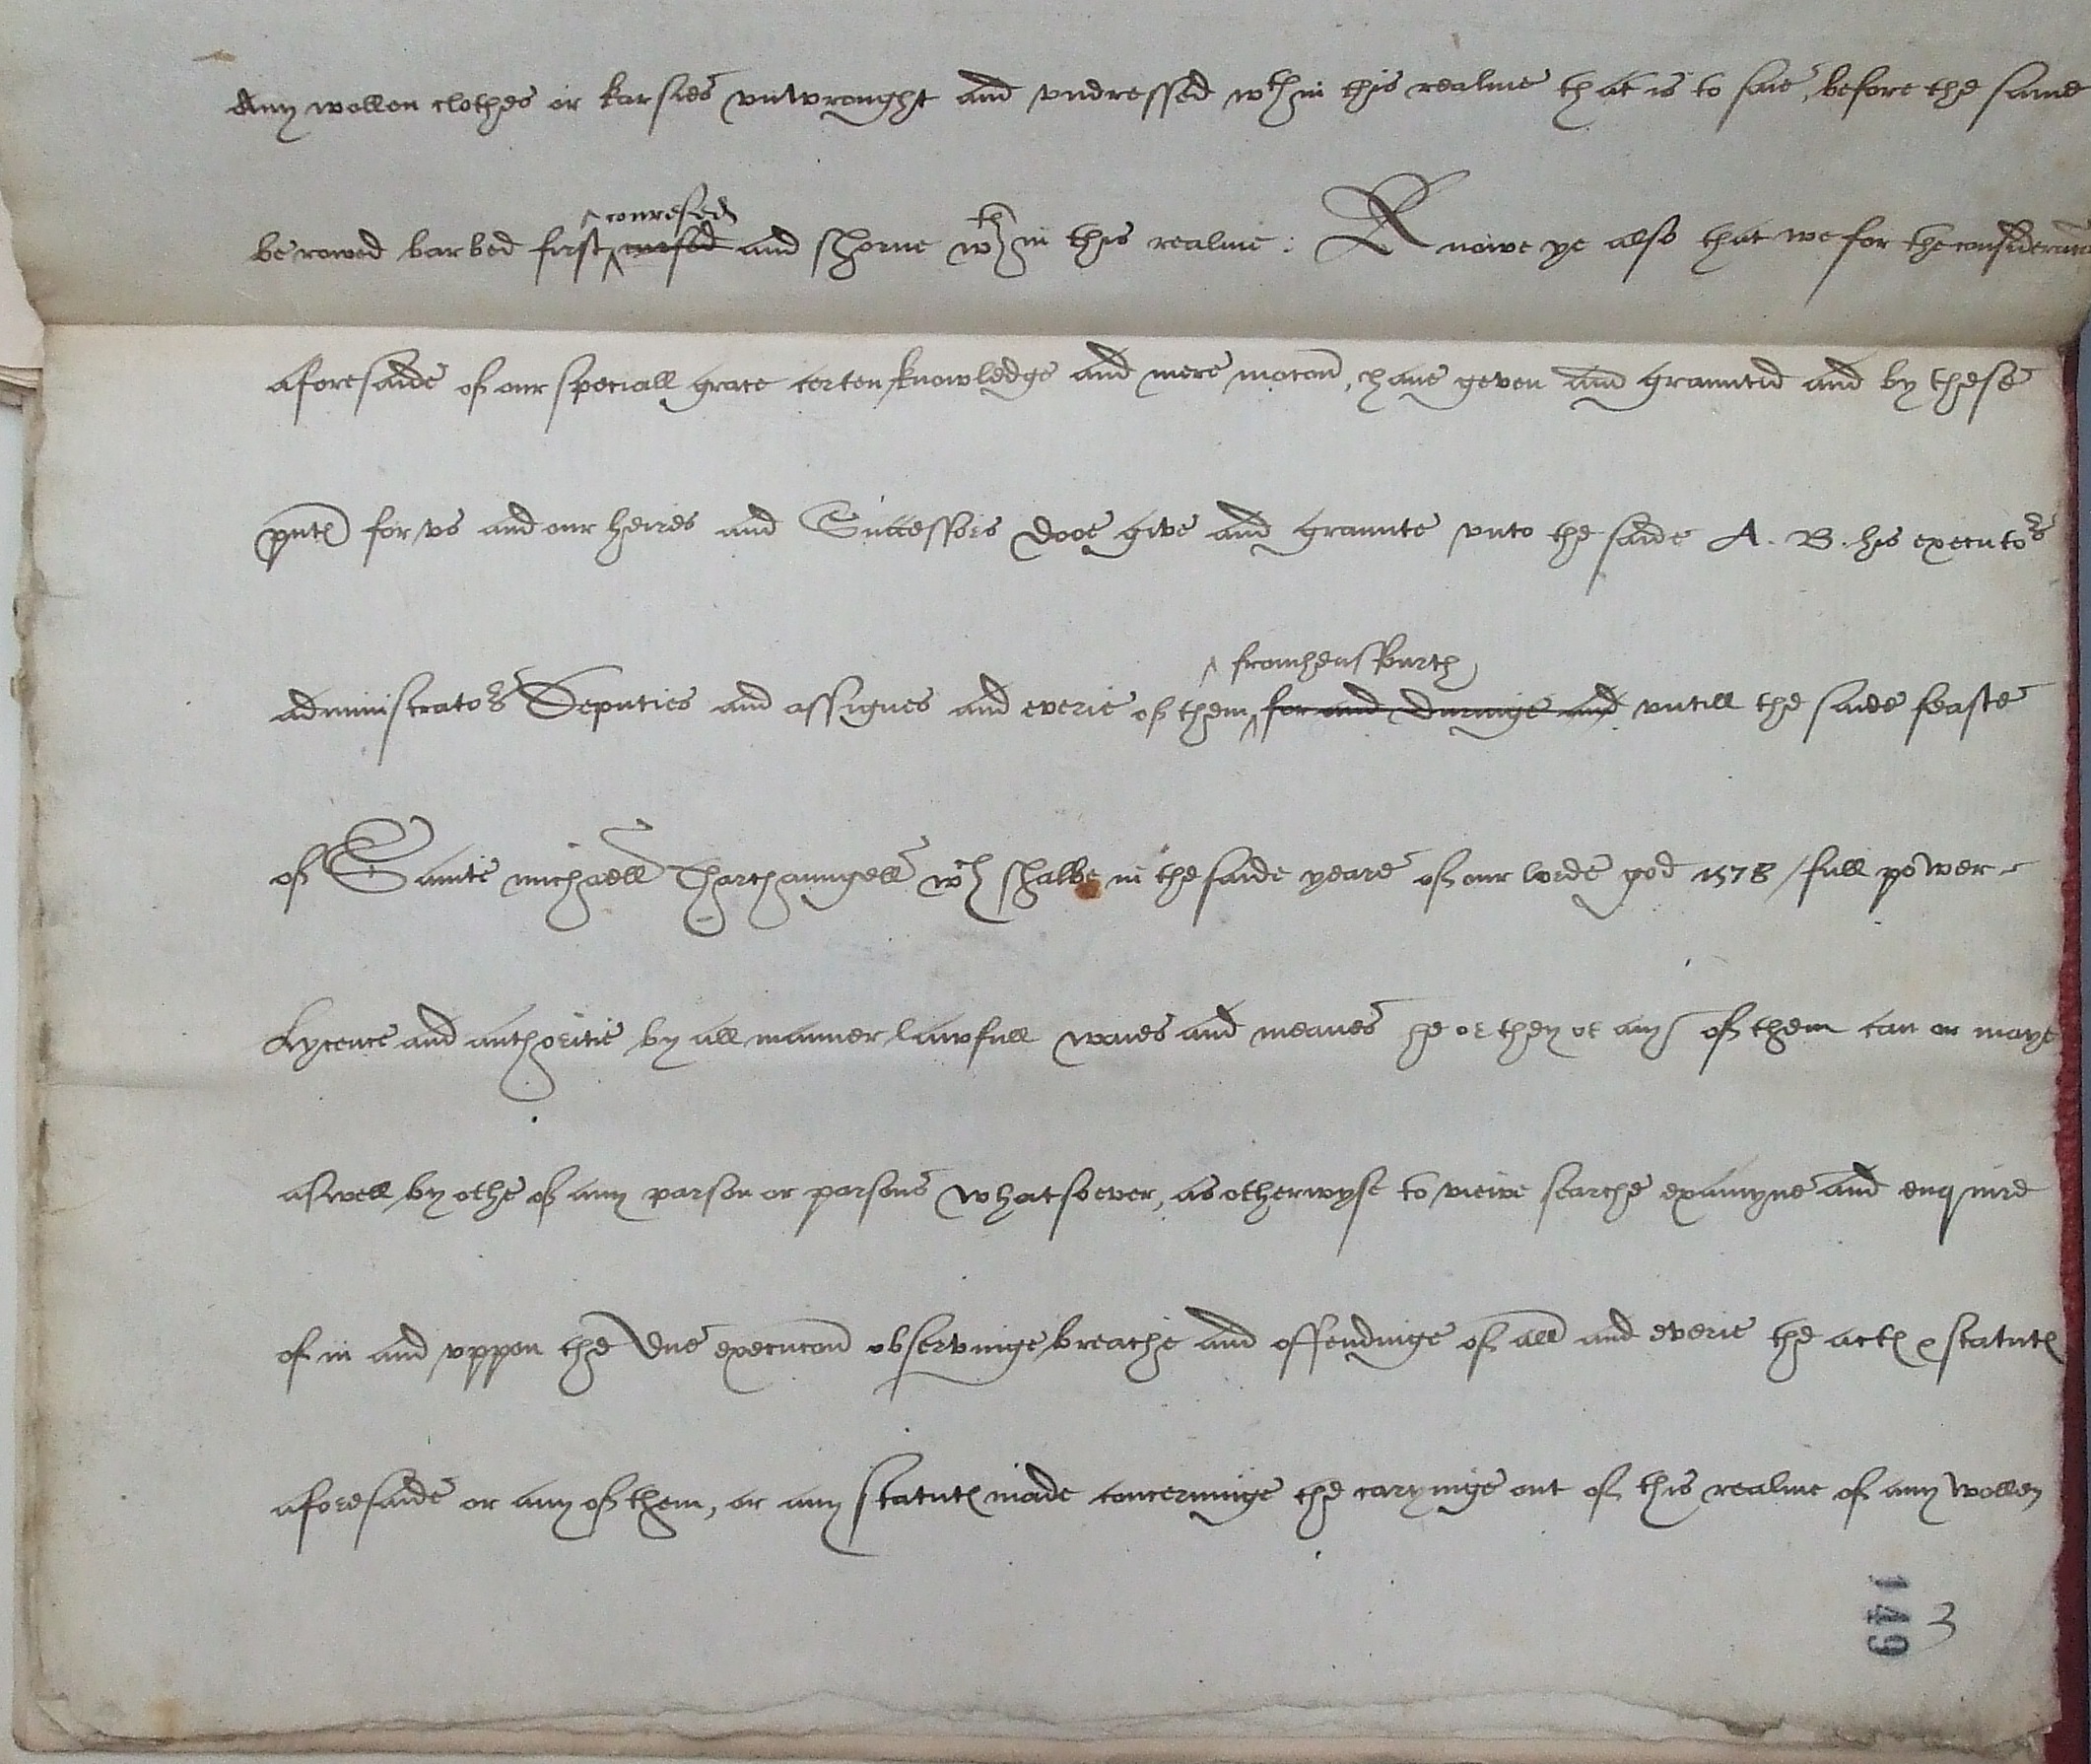 Any wollen clothes or karsies vnwrought and vndressed wthin this realme that is to saie, before the same
^ couresed
be rowed barbed first ^ corsed and shorne wthin this realme : Knowe ye also that we for the consideracõ
aforesaide of our speciall grace certen knowledge and mere mocon, have geven and graunted and by these
pntes for vs and our heires and Successors dooe give and graunte vnto the saide A. B. his executors
^ fromhensfourth
administrators Deputies and assignes and everie of them ^ for and duringe and vntill the saide feaste
of Sainte michaell Tharchaungell wch shalbe in the saide yeare of our lorde god 1578 / full power
Lycence and authoritie by all manner lawfull waies and meanes he or they or any of them can or maye
aswell by othe of any parson or parsons whatsoever, as otherwyse to vieive searche examyne and enquire
of in and vppon the due execucon observinge breache and offendinge of all and everie the actes & statutes
aforesaide or any of them, or any statutes made concerninge the caryinge out of this realme of any wollen
149
3